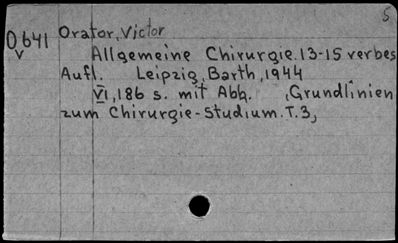 5
O641 Orator, Victor
v Allgemeine Chirurgie. 13-15 verbes
Aufl. Leipzig, Barth, 1944
VI, 186 s. mit Abb. (Grundlinien
zum Chirurgie-Studium. T.3,